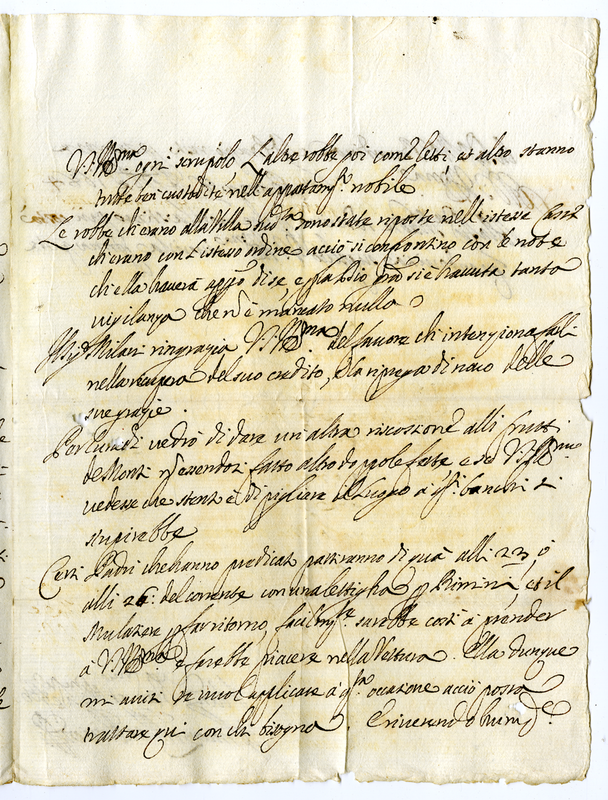 V.S. Ill.ma ogni scrupolo. L'altre robbe poi come letti et altro stanno
tutte ben custodite nell'appartam.to nobile
Le robbe ch'erano alla Villa sono state riposte nell'istesse
ch'erano con l'istesso ordine acciò si confrontino con le note
ch'ella haverà app.o di se, e si è havuta tanta
vigilanza che n è mancato nulla
Milani ringrazia V.S. Ill.ma del favore ch'intenziona
nella del suo credito, e la di novo delle
sue grazie.
Per Lunedì vedrò di dare un'altra riscossione alli frutti
de Monti n essendosi fatto altro doppo le feste e se V.S. Ill.ma
vedesse che stento è di pigliare à q.ti banchi si
stupirebbe
Certi Padri che hanno predicato partiranno di quà alli 23, ò
alli 26 del corrente con una lettigha p Rimini, et il
Mulatiere p far ritorno facilm.te sarebbe costì à prender
à V.S. Ill.ma e farebbe piacere nella Vettura. Ella dunque
mi avisi se vuol applicare à q.ta occasione acciò possa
trattare qui con chi bisogna. E riverendo hum.te